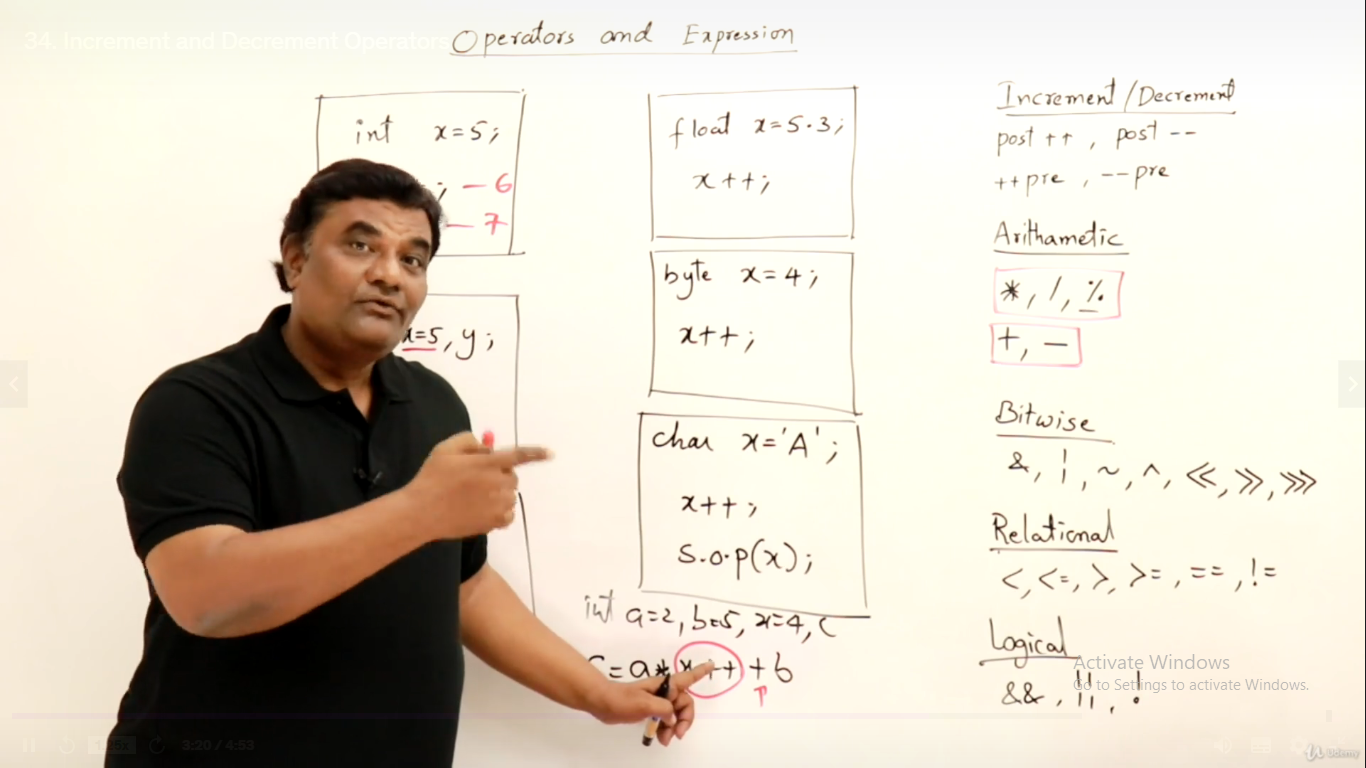 34. Increment and Decrement Operators
Operators and Expression
int x=5;
; — 6
— 7
x=5, y;
float x=5.3;
x++;
byte x=4;
x++;
char x='A';
x++;
S.o.p(x);
int a=2, b=5, x=4, c
c=a* x++ +b
Increment/Decrement
post ++ , post --
++pre , --pre
Arithametic
*, /, %
+, −
Bitwise
&, ¦, ~, ^, <<, >>, >>>
Relational
<, <=, >, >=, ==, !=
Logical
&&, ¦¦, !
Activate Windows
Go to Settings to activate Windows.
3:20 / 4:53
Udemy